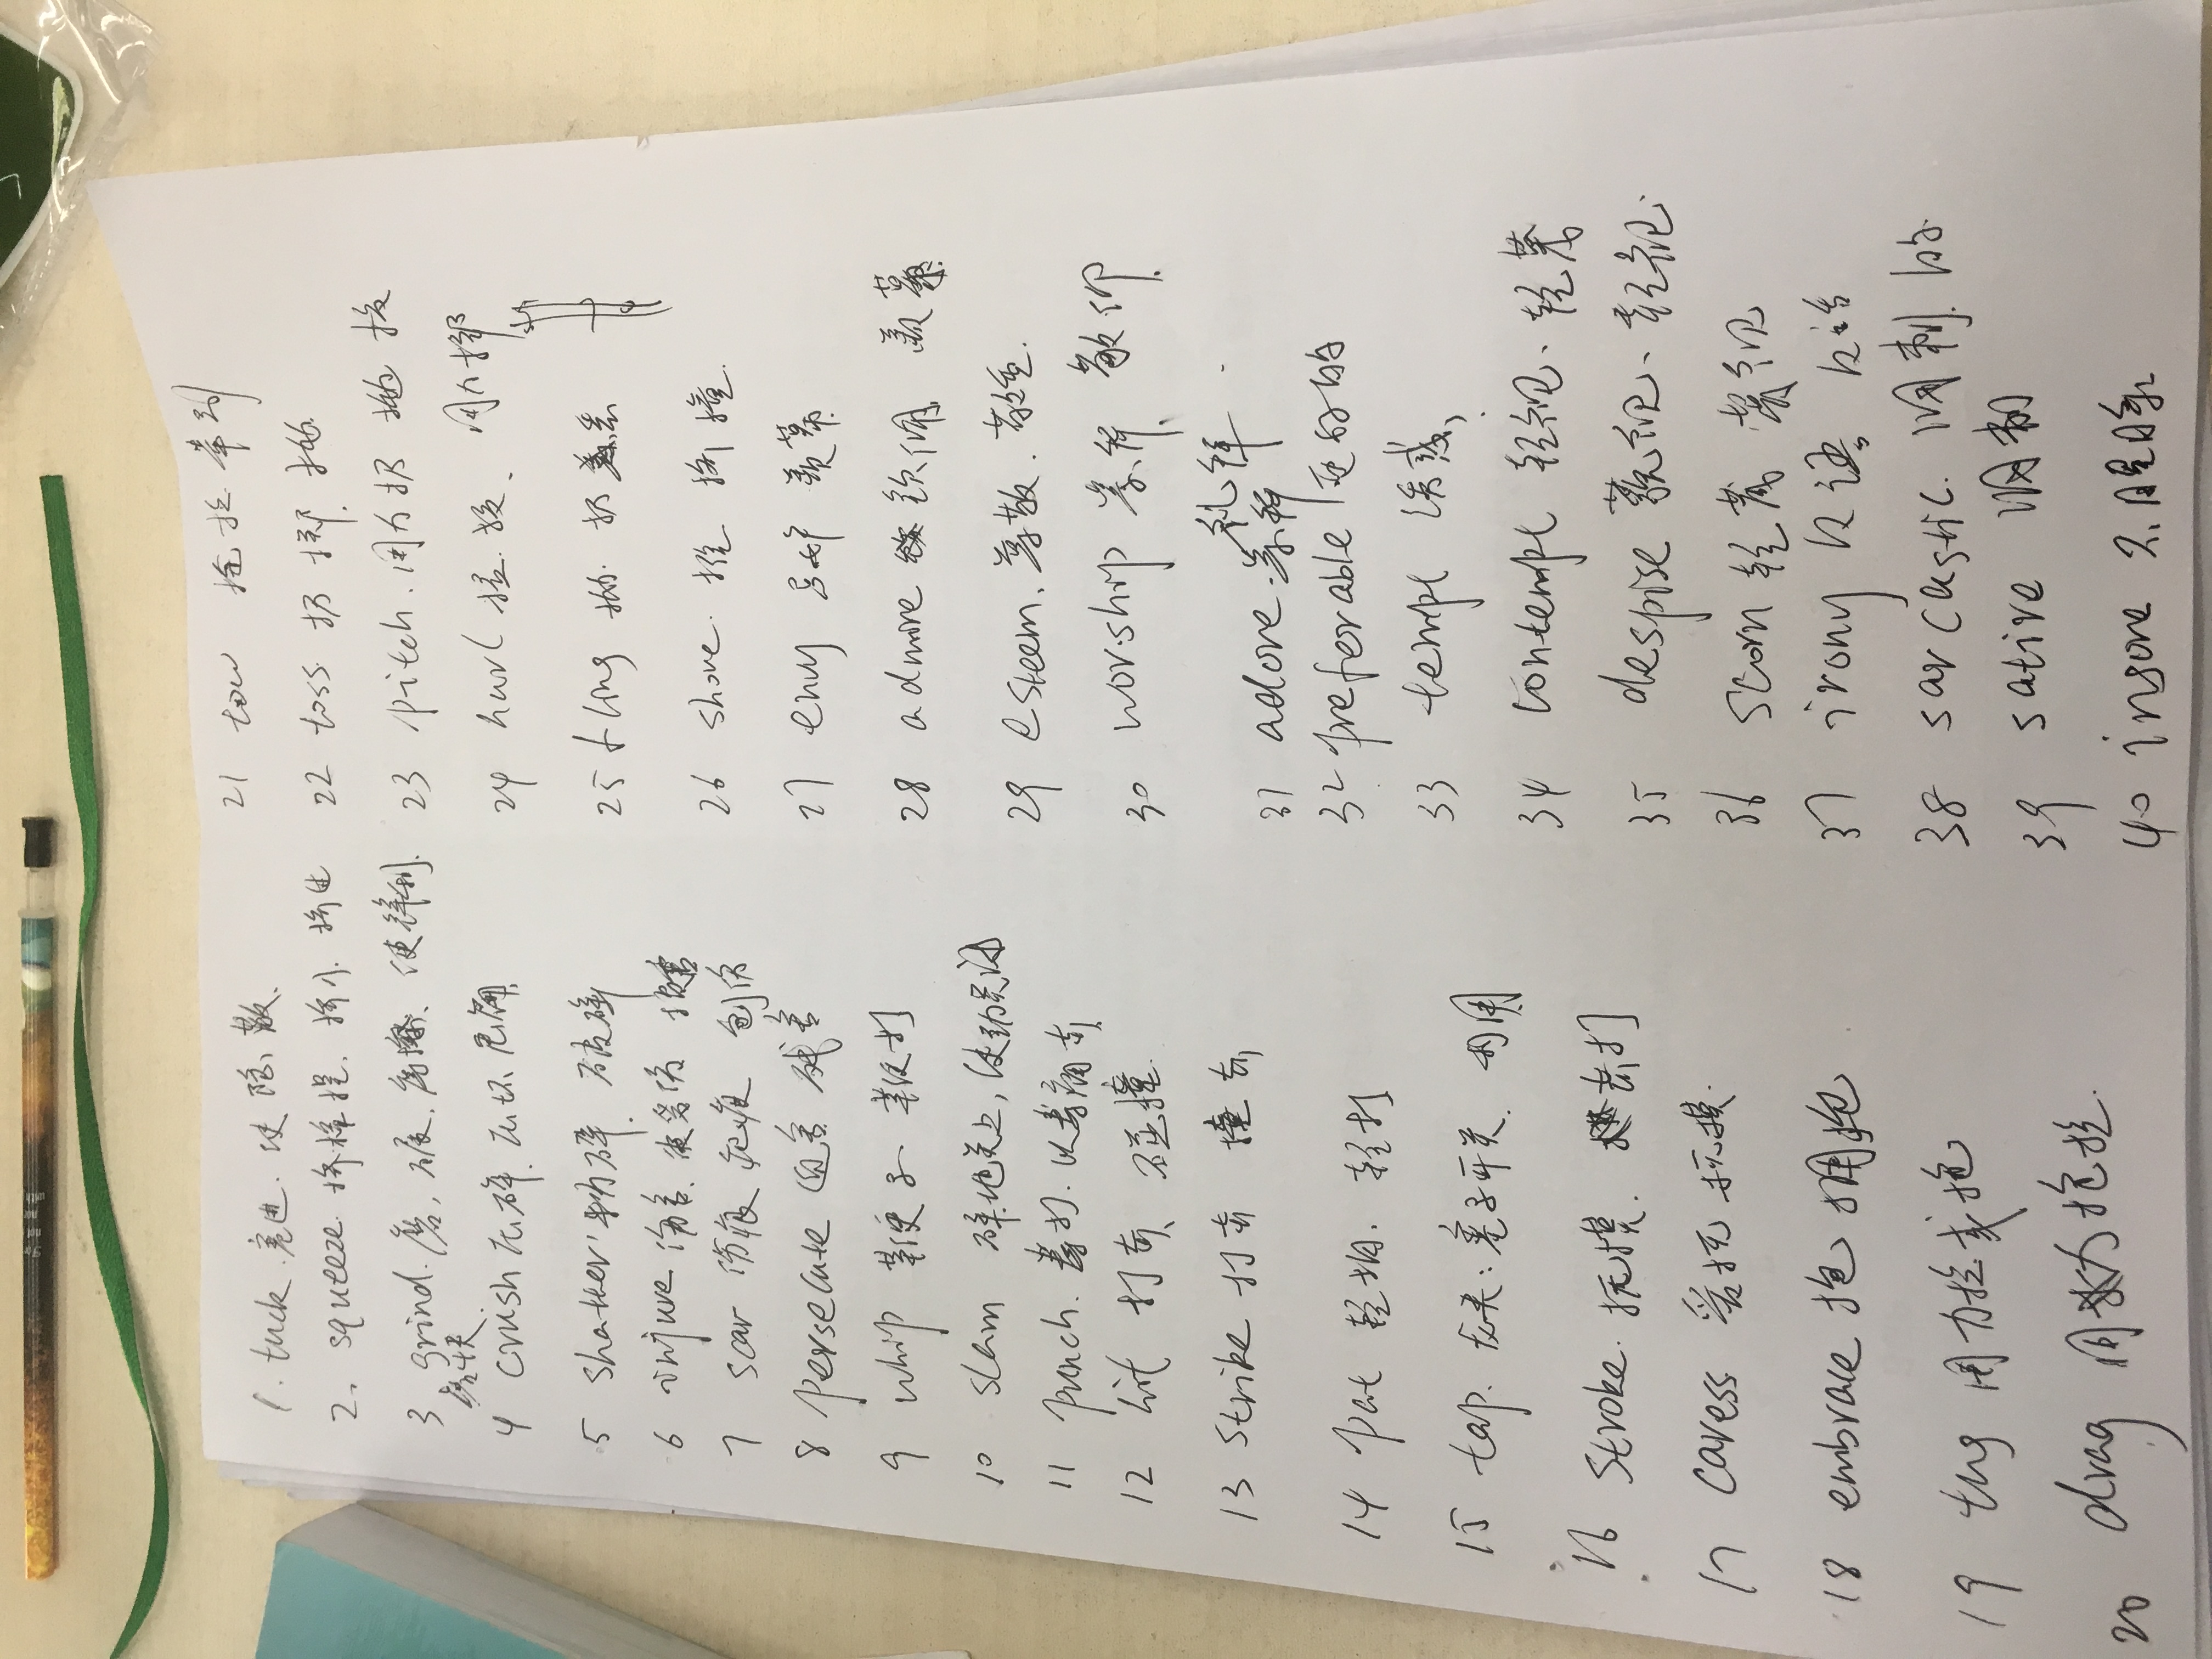 1. tuck. 塞进. 使隐蔽.
2. squeeze 挤榨捏. 挤入. 挤出
3 grind. 磨, 碾. 磨擦. 使锋利.
磨牙
4 crush 压碎. 压坏. 压扁
5 shatter 粉碎. 破碎
6 injure 伤害. 使受伤 损害
7 scar 伤痕 疤痕 创伤
8 persecute 迫害 残害
9 whip 鞭子 鞭打
10 slam 砰地关上, 使劲关闭
11 punch. 拳打. 以拳痛击
12 hit 打击 碰撞
13 Strike 打击 撞击
14 Pat 轻拍. 轻打
15 tap. 龙头: 塞子 开关. 利用
16 Stroke. 抚摸. 击打
17 caress 爱抚 抚摸.
18 embrace 抱 拥抱
19 tug 用力拉或拖
20 drag 用力拖拉.
21 tow 拖拉 牵引
22 toss 扔 掷. 抛.
23 pitch. 用力扔 抛 投
24 hurl 猛投、 用力掷
25 fling 抛. 扔 丢
26 shove. 推 挤 撞.
27 envy 忌妒 羡慕.
28 admire 钦佩 羡慕.
29 esteem. 尊敬. 敬重.
30 worship 崇拜. 敬仰.
31 adore. 崇拜 礼拜
32 preferable 更好的
33 tempt 诱惑,
34 contempt 轻视、轻蔑
35 despise 藐视、轻视.
36 scorn 轻蔑 藐视
37 irony 反语 反话
38 sarcastic. 讽刺的
39 satire 讽刺